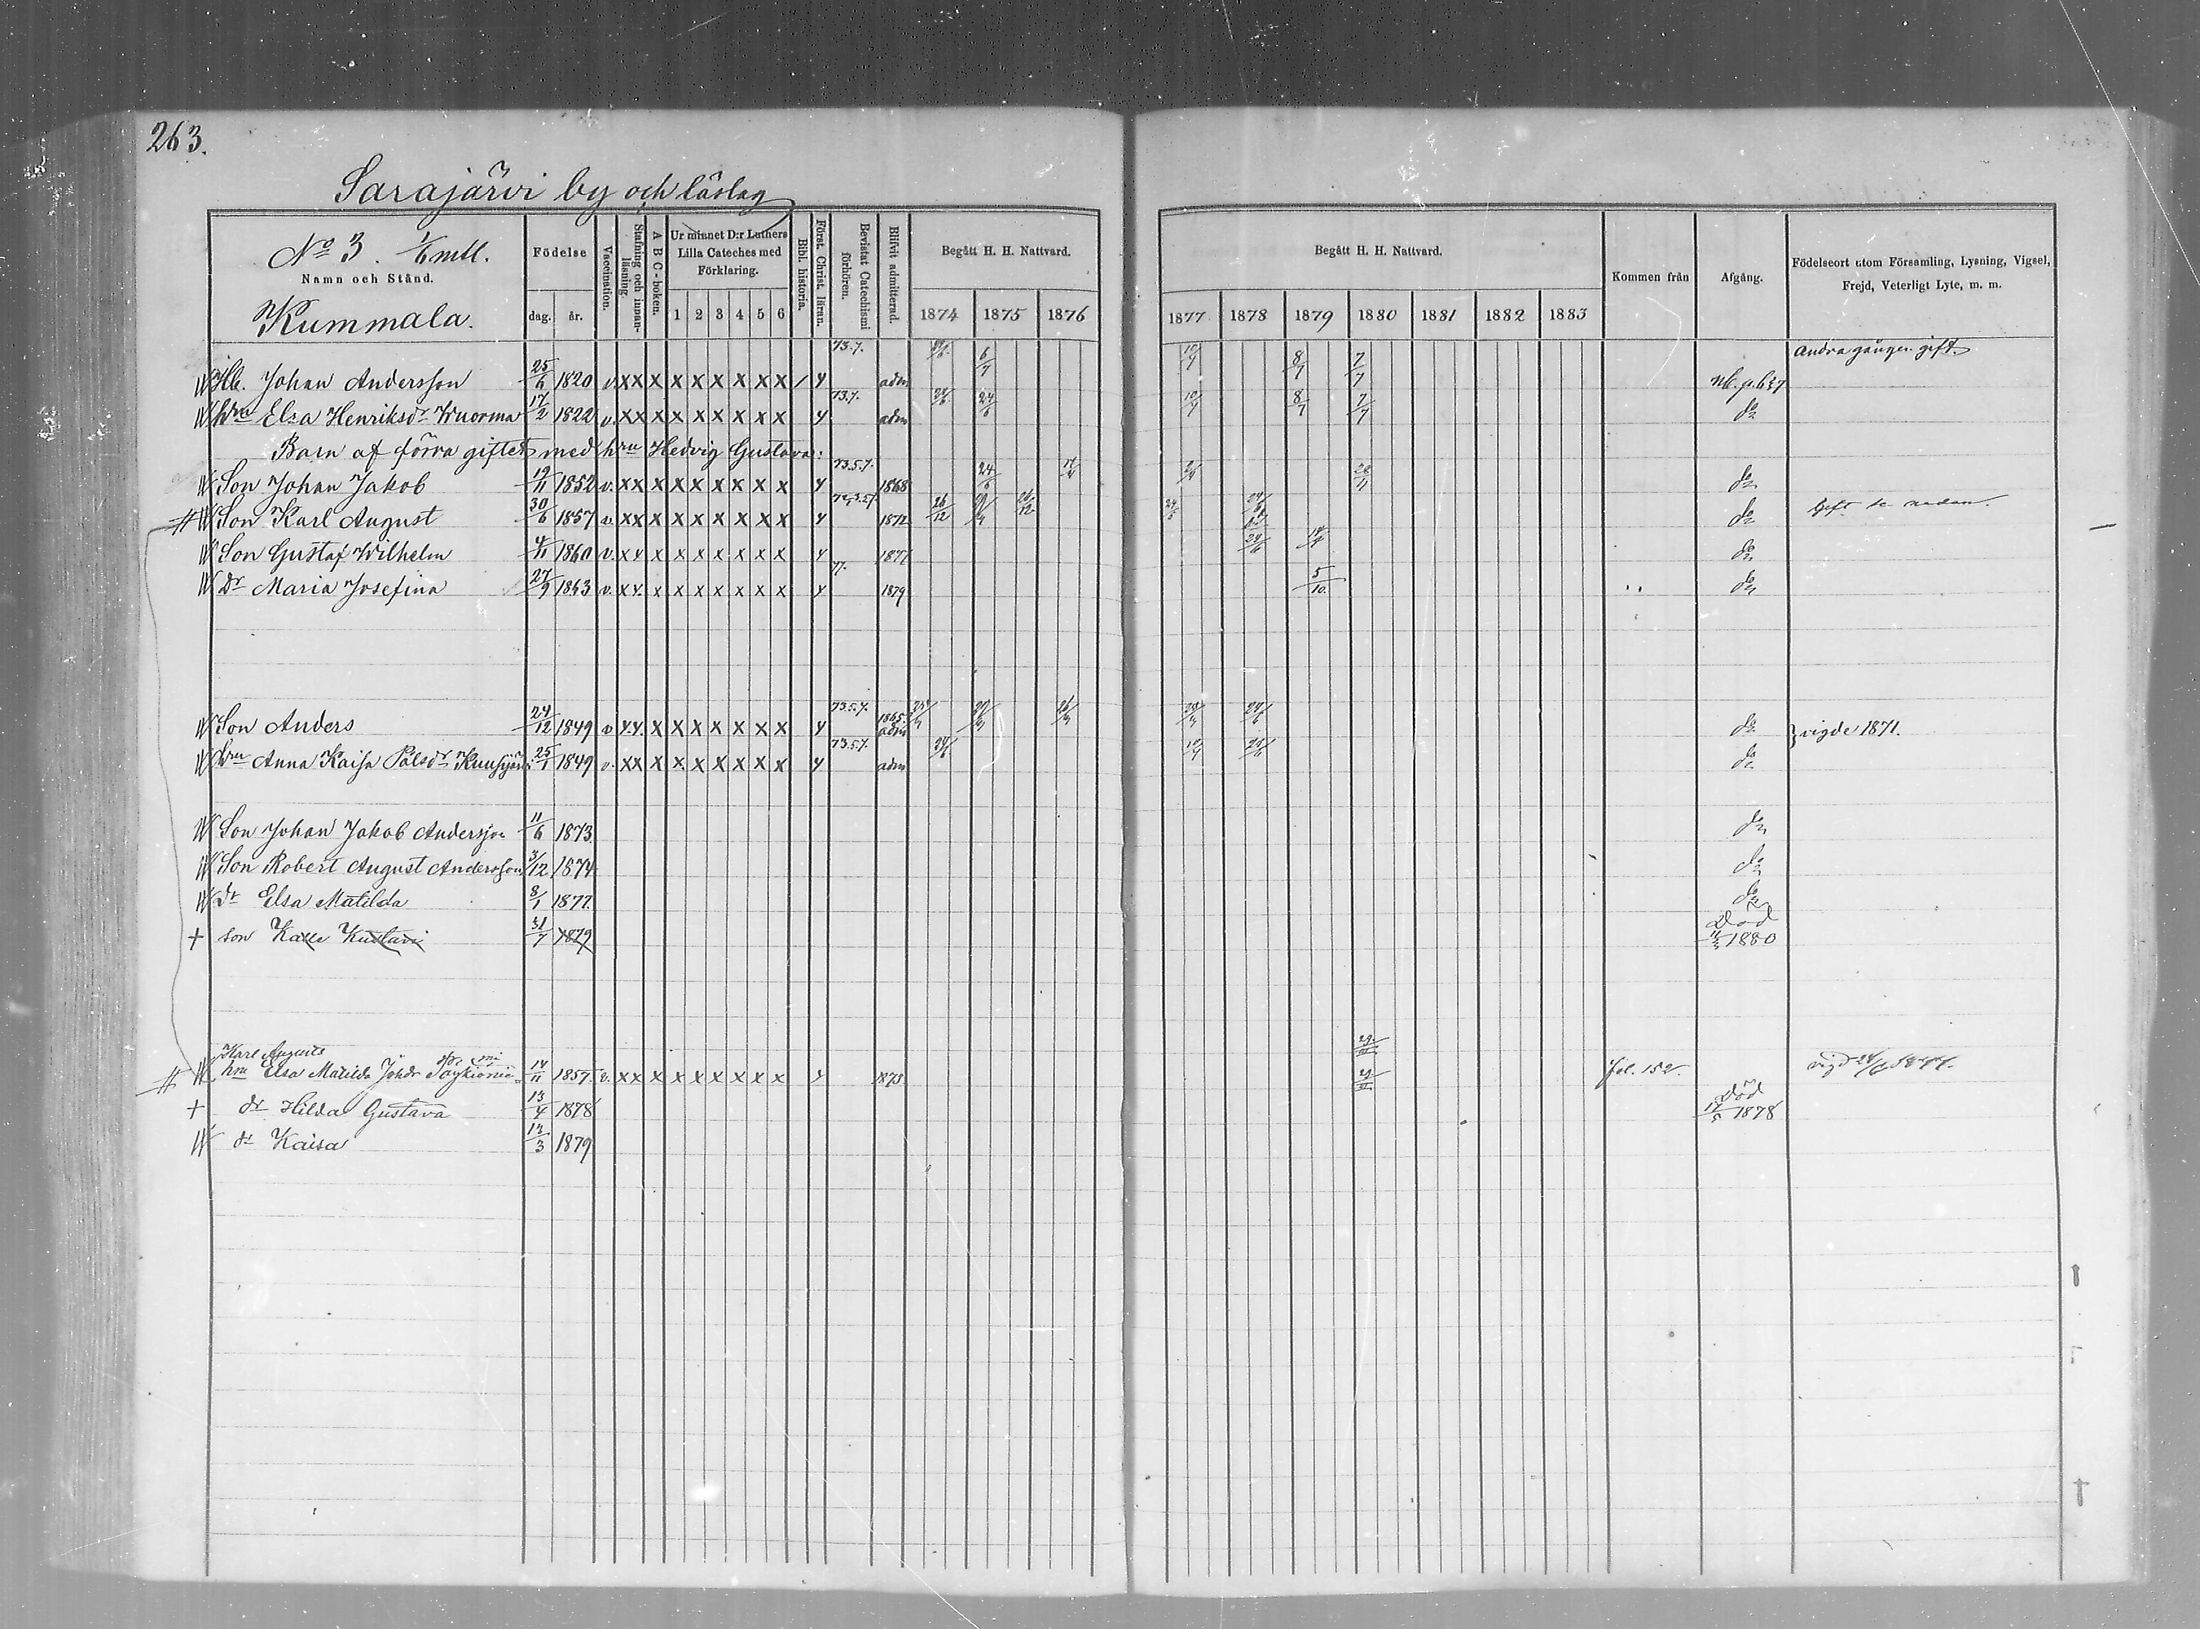 263.
Sarajärvi by och läslag
No 3. 1/6 mtl.
Namn och Stånd.
Kummala.
Födelse
dag. år.
Vaccination.
Stafning och innan-läsning.
A B C-boken.
Ur minnet D:r Luthers Lilla Cateches med Förklaring.
1 2 3 4 5 6
Bibl. historia.
Först. Christ. läran.
Bevistat Catechismi förhören.
Blifvit admitterad.
Begått H. H. Nattvard.
1874 1875 1876
Begått H. H. Nattvard.
1877 1878 1879 1880 1881 1882 1883
Kommen från
Afgång.
Födelseort utom Församling, Lysning, Vigsel, Frejd, Veterligt Lyte, m. m.
Hb. Johan Andersson 25/6 1820 v. x x x x x x x x x / y 73.7. adm 6/7 10/7 8/7 7/7 nb. p. 637 Andra gången gift.
hru Elsa Henriksdr Wuorma 17/2 1822 v. x x x x x x x x x y 73.7. adm 24/6 24/6 10/7 8/7 7/7 do
Barn af förra giftet med hru Hedvig Gustava:
Son Johan Jakob 19/11 1852 v. x x x x x x x x x y 73.5.7. 1868 24/6 do
Son Karl August 30/6 1857 v. x x x x x x x x x y 1872 26/12 do Gift se nedan.
Son Gustaf Wilhelm 4/11 1860 v. x x x x x x x x x y 1877 do
Dr Maria Josefina 27/9 1863 v. x x x x x x x x x y 77. 1879 5/10 do
Son Anders 24/12 1849 v x x x x x x x x x y 73.5.7. 1865. adm do } vigde 1871.
hru Anna Kaisa Pålsdr 25/1 1849 v. x x x x x x x x x y 73.5.7. adm 24/6 10/7 do
Son Johan Jakob Andersson 11/6 1873 do
Son Robert August Andersson 3/12 1874 do
dr Elsa Matilda 8/1 1877. do
+ son Kalle Kustavi 31/7 1879 Död 1880
Karl Augusts
hru Elsa Matilda Johdr 14/11 1857 v. x x x x x x x x x y 1873 fol. 152. vigd
+ dr Hilda Gustava 13/4 1878 Död 17/5 1878
dr Kaisa 13/3 1879